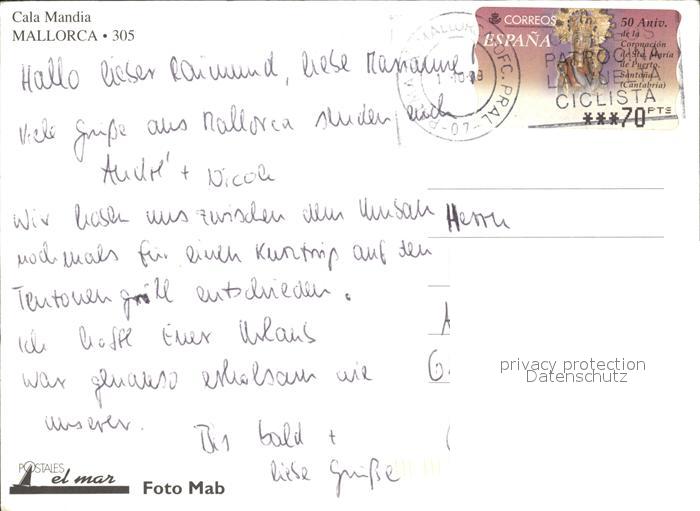 Cala Mandia
MALLORCA • 305
CORREOS
ESPAÑA
50 Aniv.
de la
Coronación
de Sta. María
de Puerto
Santoña
(Cantabria)
CICLISTA
***70 PTS
Hallo lieber Raimund, liebe Marianne!
Viele Grüße aus Mallorca senden euch
André + Nicole
Wir haben uns zwischen dem
nochmals für einen Kurztrip auf den
Teutonengrill entschieden.
Ich hoffe Euer Urlaub
war genauso erholsam wie
unserer.
Bis bald +
liebe Grüße
Herrn
privacy protection
Datenschutz
POSTALES
el mar
Foto Mab